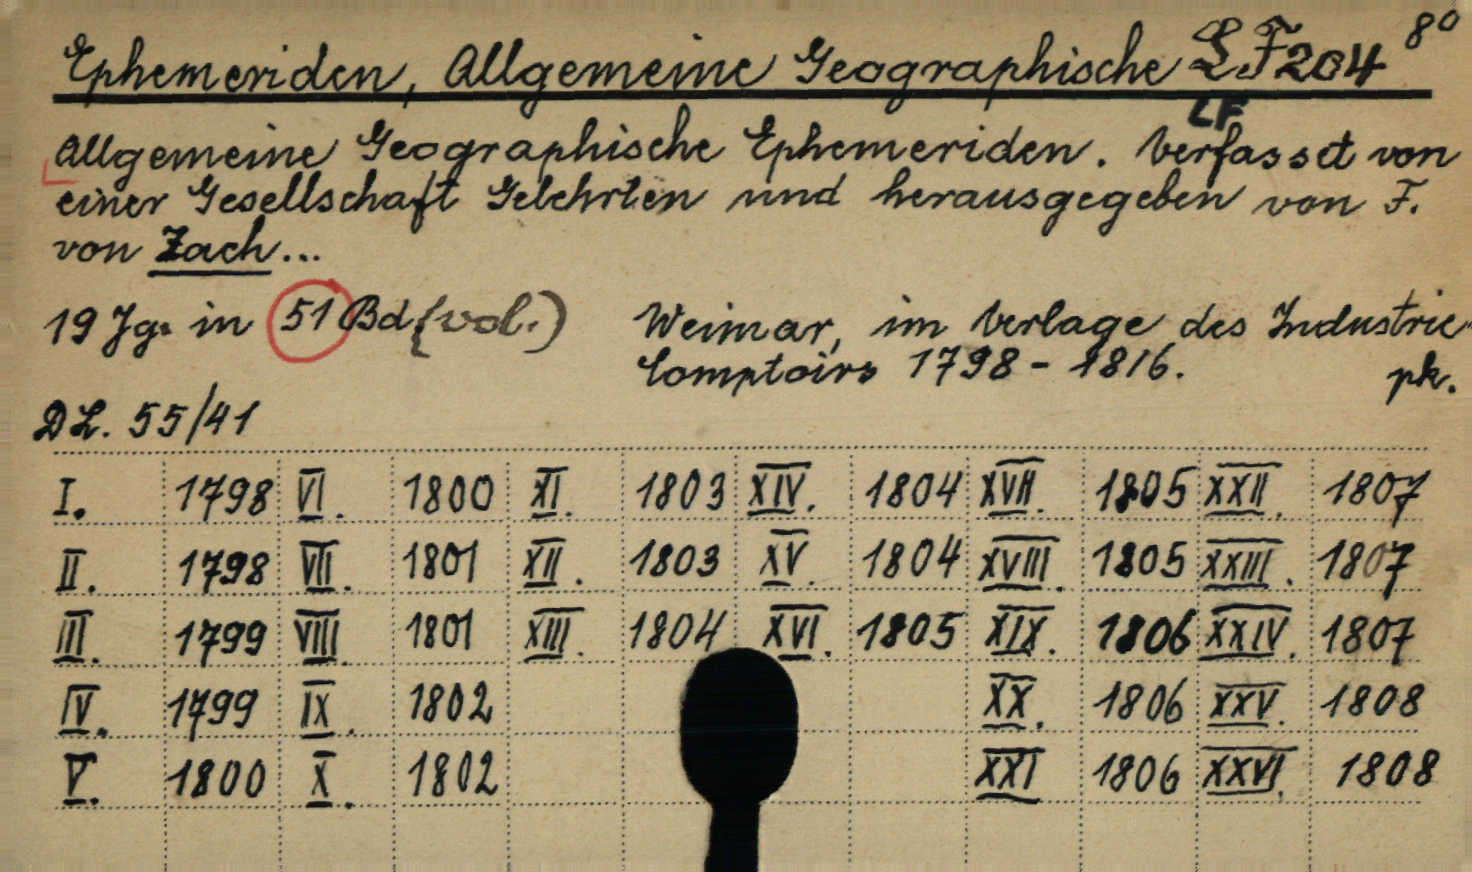 Ephemeriden, Allgemeine Geographische LF204 8°
LF
Allgemeine Geographische Ephemeriden. Verfasst von
einer Gesellschaft Gelehrten und herausgegeben von F.
von Zach...
19 Jg. in 51 Bd (vol.) Weimar, im Verlage des Industrie-
Comptoirs 1798-1816.
pk.
DL. 55/41
I. 1798 VI. 1800 XI. 1803 XIV. 1804 XVII. 1805 XXII. 1807
II. 1798 VII. 1801 XII. 1803 XV. 1804 XVIII. 1805 XXIII. 1807
III. 1799 VIII. 1801 XIII. 1804 XVI. 1805 XIX. 1806 XXIV. 1807
IV. 1799 IX. 1802 XX. 1806 XXV. 1808
V. 1800 X. 1802 XXI 1806 XXVI. 1808